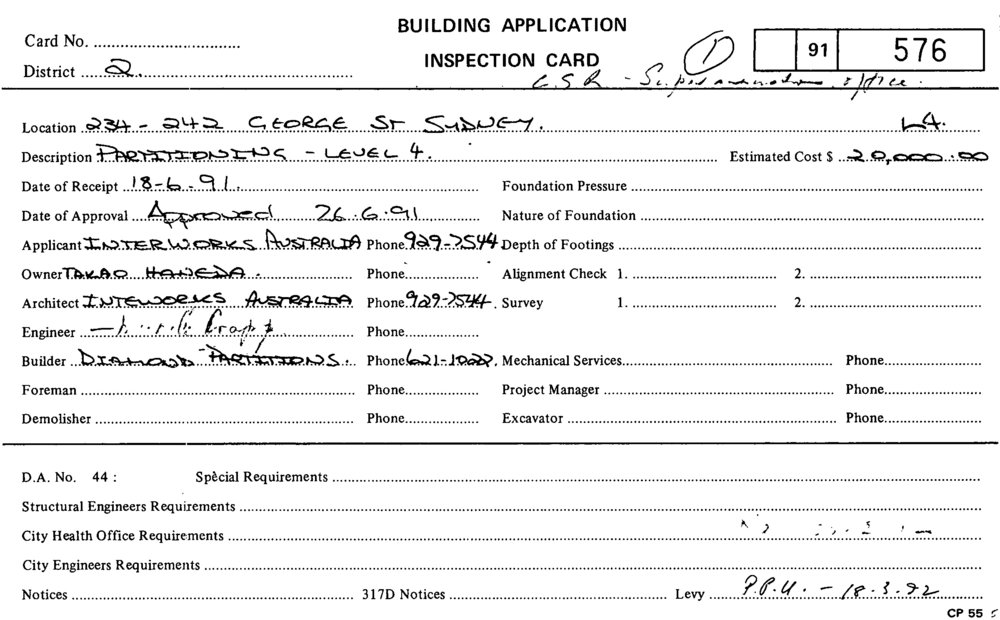 BUILDING APPLICATION
INSPECTION CARD
Card No.
District 2.
1
91 576
C.S.R - Superannuation office.
Location 234 - 242 GEORGE ST SYDNEY. L4.
Description PARTITIONING - LEVEL 4. Estimated Cost $ 20,000.00
Date of Receipt 18-6-91. Foundation Pressure
Date of Approval Approved 26.6.91 Nature of Foundation
Applicant INTERWORKS AUSTRALIA Phone 929-2544 Depth of Footings
Owner TAKAO HANEDA. Phone Alignment Check 1. 2.
Architect INTEWORKS AUSTRALIA Phone 929-2544 Survey 1. 2.
Engineer Phone
Builder DIAMOND PARTITIONS. Phone 621-1022. Mechanical Services Phone
Foreman Phone Project Manager Phone
Demolisher Phone Excavator Phone
D.A. No. 44 : Spècial Requirements
Structural Engineers Requirements
City Health Office Requirements
City Engineers Requirements
Notices 317D Notices Levy P.P.U. - 18.3.92
CP 55